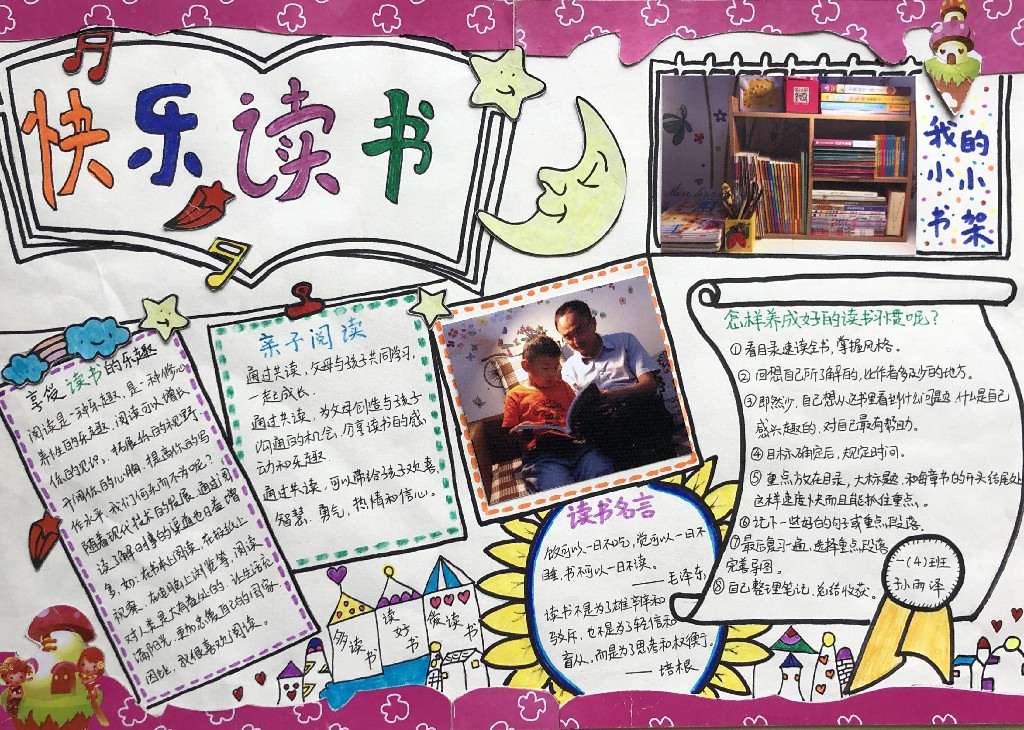 快乐读书
我的
小小
书架
享受读书的乐趣
阅读是一种乐趣，是一种修心
养性的乐趣，阅读可以增长
你的见识，拓展你的视野，
开阔你的心胸，提高你的写
作水平，我们何乐而不为呢？
随着现代技术的发展，通过阅
读了解时事的渠道也日益增
多，如：在书本上阅读，在报纸上
观察，在电脑上浏览等，阅读
对人类是大有益处的，让生活充
满阳光，更加忠爱自己的国家。
因此，我很喜欢阅读。
亲子阅读
通过共读，父母与孩子共同学习，
一起成长.
通过共读，为父母创造与孩子
沟通的机会，分享读书的感
动和乐趣.
通过共读，可以带给孩子欢喜、
智慧、勇气，热情和信心。
多读书
读好书
爱读书
读书名言
饭可以一日不吃，觉可以一日不
睡，书不可以一日不读。
——毛泽东
读书不是为了雄辩和
驳斥，也不是为了轻信和
盲从，而是为了思考和权衡。
——培根
怎样养成好的读书习惯呢？
①看目录速读全书，掌握风格。
②回想自己所了解的，比作者多或少的地方。
③即然少，自己想从这书里看到什么问题，什么是自己
感兴趣的，对自己最有帮助。
④目标确定后，规定时间。
⑤重点放在目录，大标题，和每章节的开头结尾处
这样速度快而且能抓住重点。
⑥记下一些好的句子或重点段落。
⑦最后复习一遍，选择重点段落
完善导图。
⑧自己整理笔记，总结收获。
一(4)班
孙雨泽